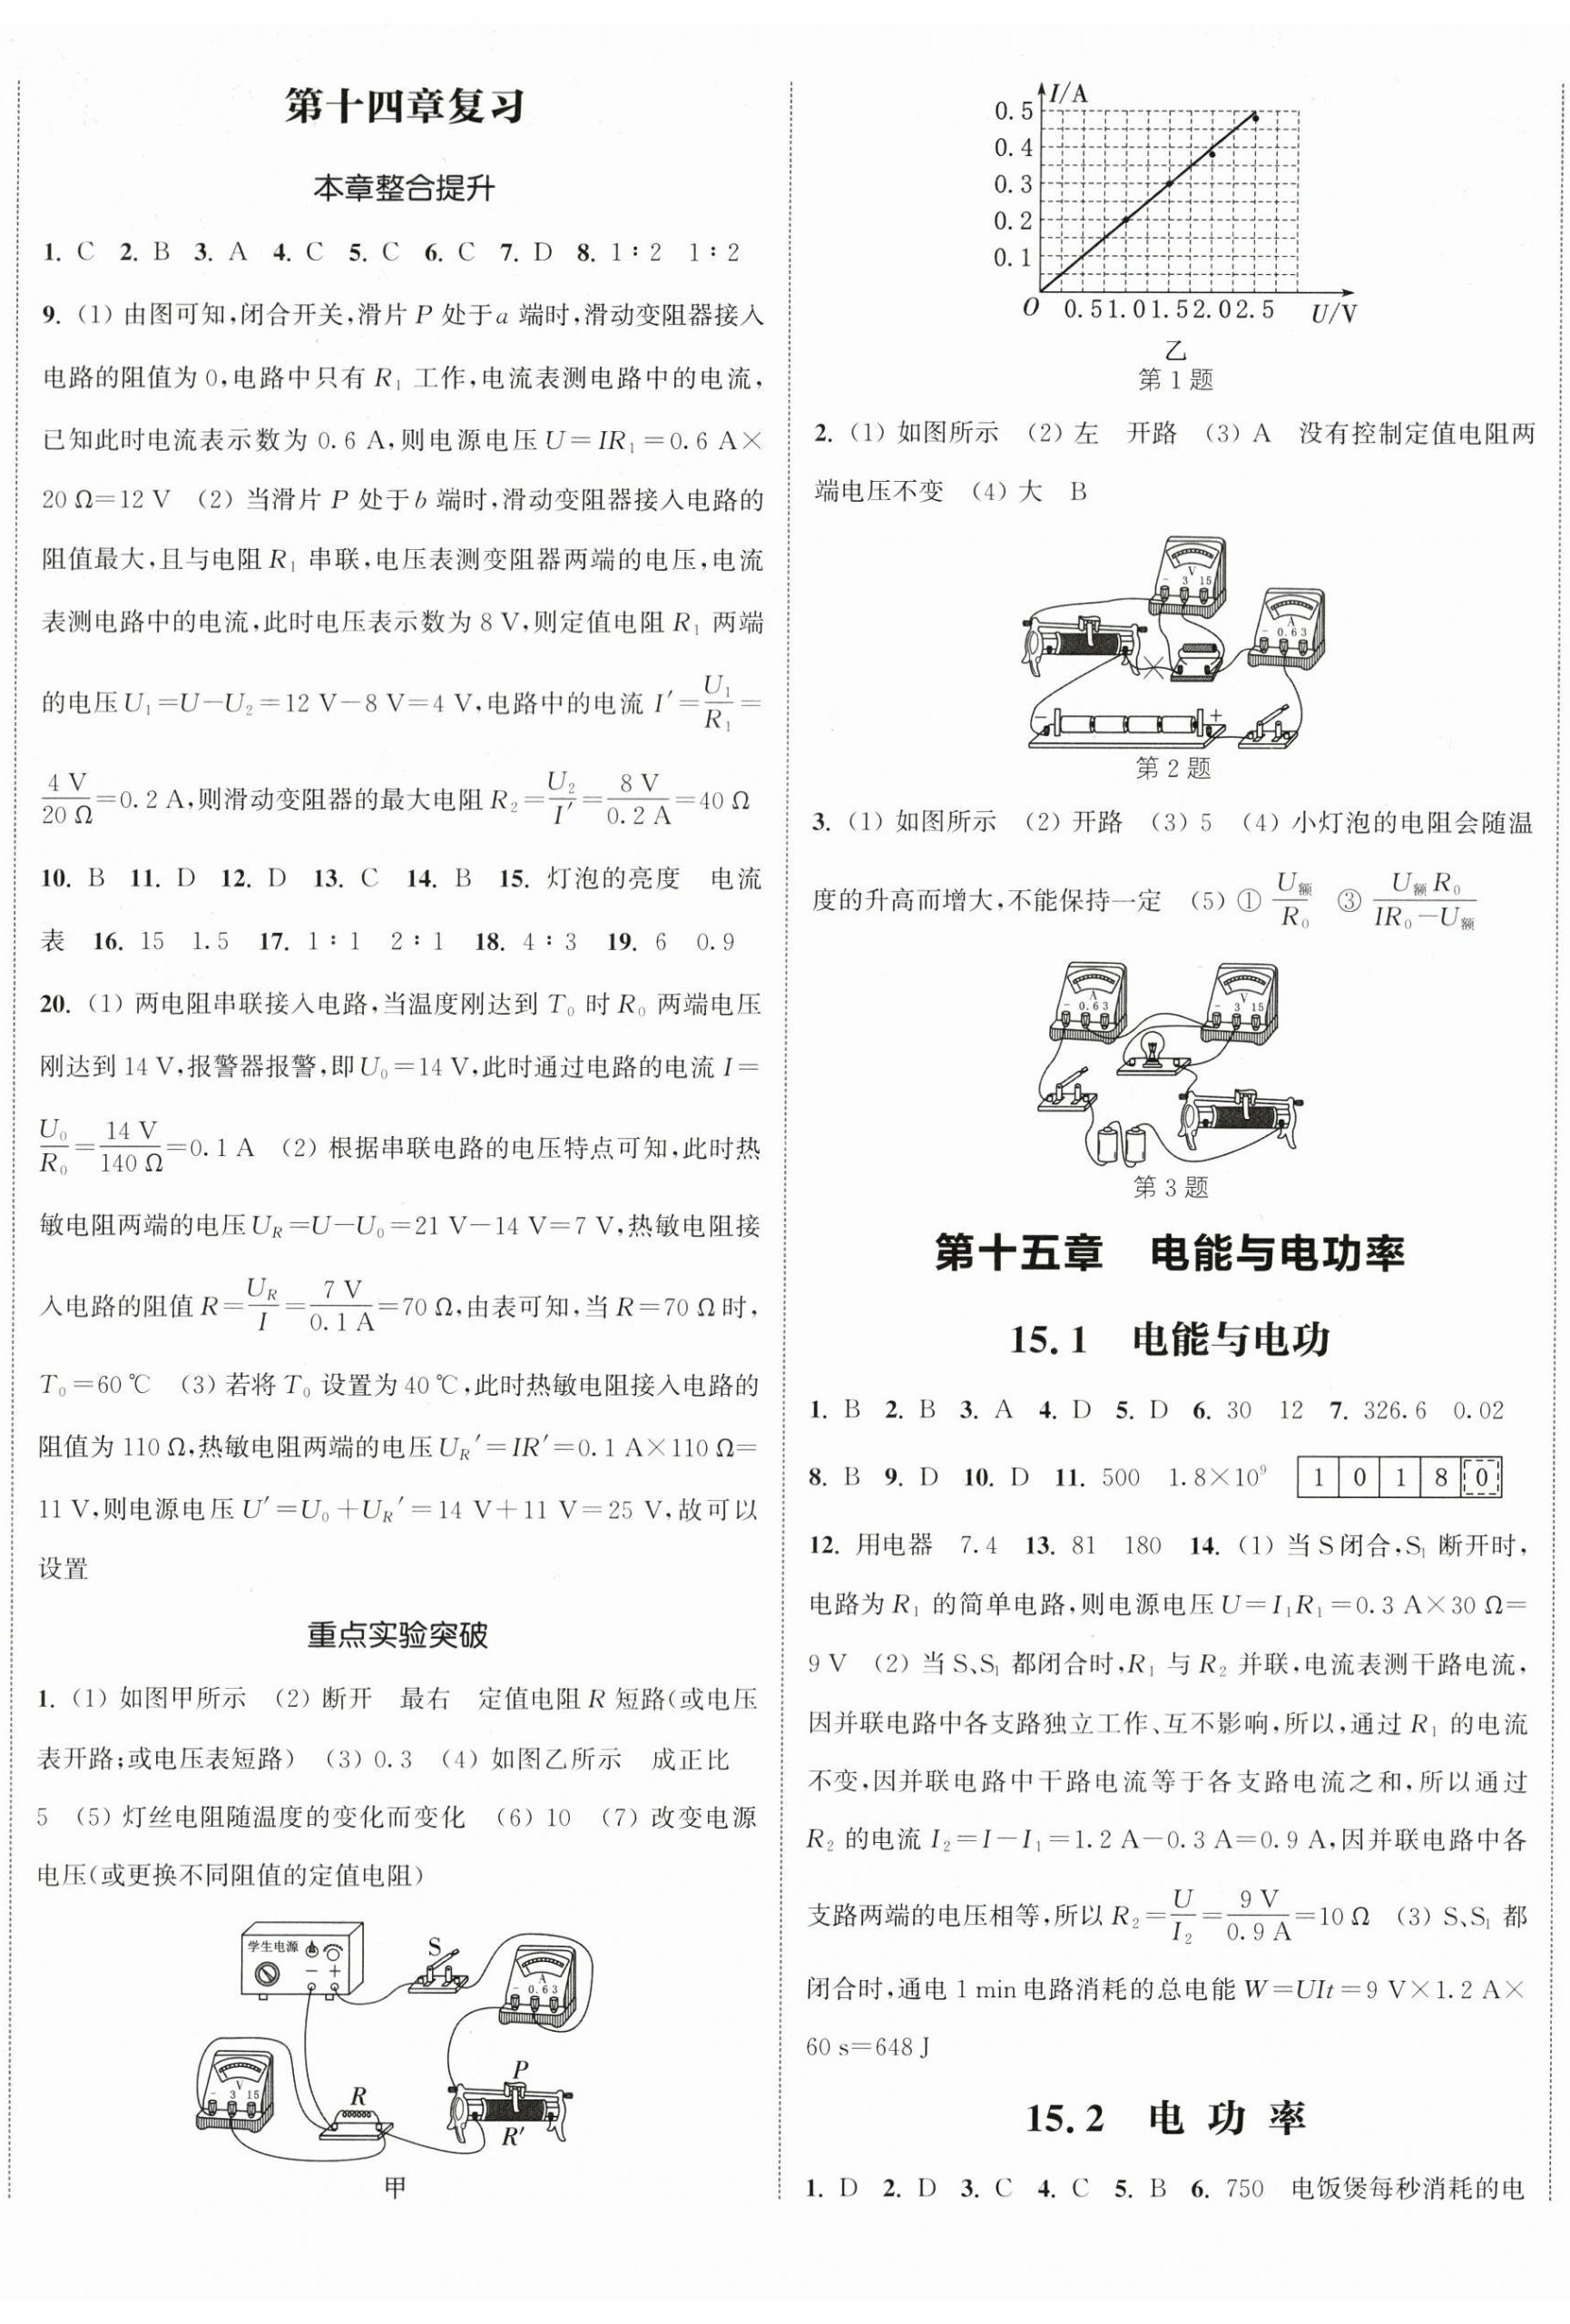 第十四章复习
本章整合提升
1. C 2. B 3. A 4. C 5. C 6. C 7. D 8. 1∶2 1∶2
9. (1) 由图可知,闭合开关,滑片 P 处于a 端时,滑动变阻器接入
电路的阻值为 0,电路中只有 R₁ 工作,电流表测电路中的电流,
已知此时电流表示数为 0.6 A,则电源电压U=IR₁=0.6 A×
20 Ω=12 V (2) 当滑片 P 处于b 端时,滑动变阻器接入电路的
阻值最大,且与电阻R₁ 串联,电压表测变阻器两端的电压,电流
表测电路中的电流,此时电压表示数为 8 V,则定值电阻 R₁ 两端
的电压U₁=U-U₂=12 V-8 V=4 V,电路中的电流 I′=U₁/R₁=
4 V/20 Ω=0.2 A,则滑动变阻器的最大电阻R₂=U₂/I′=8 V/0.2 A=40 Ω
10. B 11. D 12. D 13. C 14. B 15. 灯泡的亮度 电流
表 16. 15 1.5 17. 1∶1 2∶1 18. 4∶3 19. 6 0.9
20. (1) 两电阻串联接入电路,当温度刚达到 T₀ 时 R₀ 两端电压
刚达到 14 V,报警器报警,即U₀=14 V,此时通过电路的电流 I=
U₀/R₀=14 V/140 Ω=0.1 A (2) 根据串联电路的电压特点可知,此时热
敏电阻两端的电压U_R=U-U₀=21 V-14 V=7 V,热敏电阻接
入电路的阻值R=U_R/I=7 V/0.1 A=70 Ω,由表可知,当R=70 Ω时,
T₀=60 ℃ (3) 若将 T₀ 设置为 40 ℃,此时热敏电阻接入电路的
阻值为 110 Ω,热敏电阻两端的电压U_R′=IR′=0.1 A×110 Ω=
11 V,则电源电压 U′=U₀+U_R′=14 V+11 V=25 V,故可以
设置
重点实验突破
1. (1) 如图甲所示 (2) 断开 最右 定值电阻R 短路(或电压
表开路;或电压表短路) (3) 0.3 (4) 如图乙所示 成正比
5 (5) 灯丝电阻随温度的变化而变化 (6) 10 (7) 改变电源
电压(或更换不同阻值的定值电阻)
学生电源
- +
S
A
- 0.6 3
V
- 3 15
R
P
R′
甲
I/A
0.5
0.4
0.3
0.2
0.1
O 0.5 1.0 1.5 2.0 2.5 U/V
乙
第 1 题
2. (1) 如图所示 (2) 左 开路 (3) A 没有控制定值电阻两
端电压不变 (4) 大 B
V
- 3 15
A
- 0.6 3
- +
第 2 题
3. (1) 如图所示 (2) 开路 (3) 5 (4) 小灯泡的电阻会随温
度的升高而增大,不能保持一定 (5) ① U额/R₀ ③ U额R₀/(IR₀-U额)
A
- 0.6 3
V
- 3 15
第 3 题
第十五章 电能与电功率
15.1 电能与电功
1. B 2. B 3. A 4. D 5. D 6. 30 12 7. 326.6 0.02
8. B 9. D 10. D 11. 500 1.8×10⁹ 1 0 1 8 0
12. 用电器 7.4 13. 81 180 14. (1) 当S闭合,S₁ 断开时,
电路为R₁ 的简单电路,则电源电压U=I₁R₁=0.3 A×30 Ω=
9 V (2) 当 S、S₁ 都闭合时,R₁ 与 R₂ 并联,电流表测干路电流,
因并联电路中各支路独立工作、互不影响,所以,通过 R₁ 的电流
不变,因并联电路中干路电流等于各支路电流之和,所以通过
R₂ 的电流 I₂=I-I₁=1.2 A-0.3 A=0.9 A,因并联电路中各
支路两端的电压相等,所以R₂=U/I₂=9 V/0.9 A=10 Ω (3) S、S₁ 都
闭合时,通电 1 min电路消耗的总电能 W=UIt=9 V×1.2 A×
60 s=648 J
15.2 电 功 率
1. D 2. D 3. C 4. C 5. B 6. 750 电饭煲每秒消耗的电